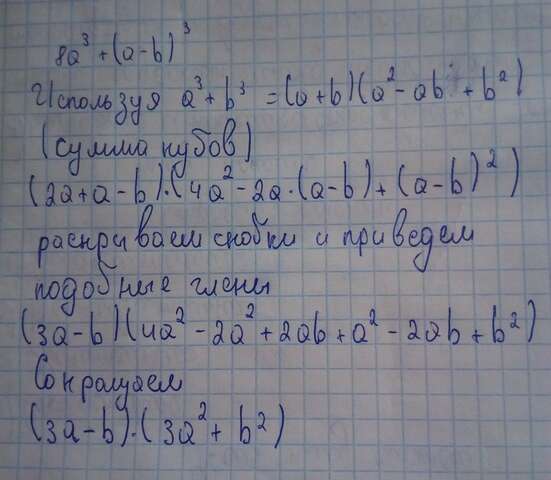 8a³ + (a-b)³
Используя a³ + b³ = (a+b)(a² - ab + b²)
(сумма кубов)
(2a + a - b)·(4a² - 2a·(a-b) + (a-b)²)
раскрываем скобки и приведем
подобные члены
(3a-b)(4a² - 2a² + 2ab + a² - 2ab + b²)
Сокращаем
(3a-b)·(3a² + b²)